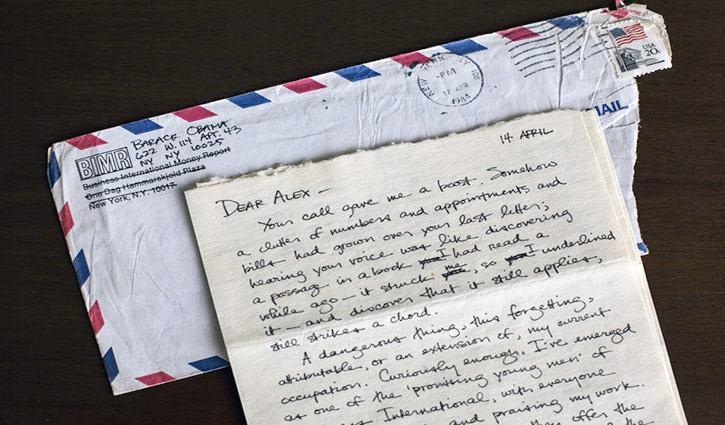 USA
20c
NEW YORK, NY
PM
17 APR
1984
MAIL
BARACK OBAMA
622 W. 114 APT. 43
NY NY 10025
BIMR
Business International Money Report
One Dag Hammarskjold Plaza
New York, N.Y. 10017
14 APRIL
DEAR ALEX —
Your call gave me a boost. Somehow
a clutter of numbers and appointments and
bills had grown over your last letter;
hearing your voice was like discovering
a passage in a book I had read a
while ago — it struck me, so I underlined
it — and discover that it still applies,
still strikes a chord.
A dangerous thing, this forgetting,
attributable, or an extension of, my current
occupation. Curiously enough, I've emerged
as one of the "promising young men" of
International, with everyone
and praising my work.
they offer the
the